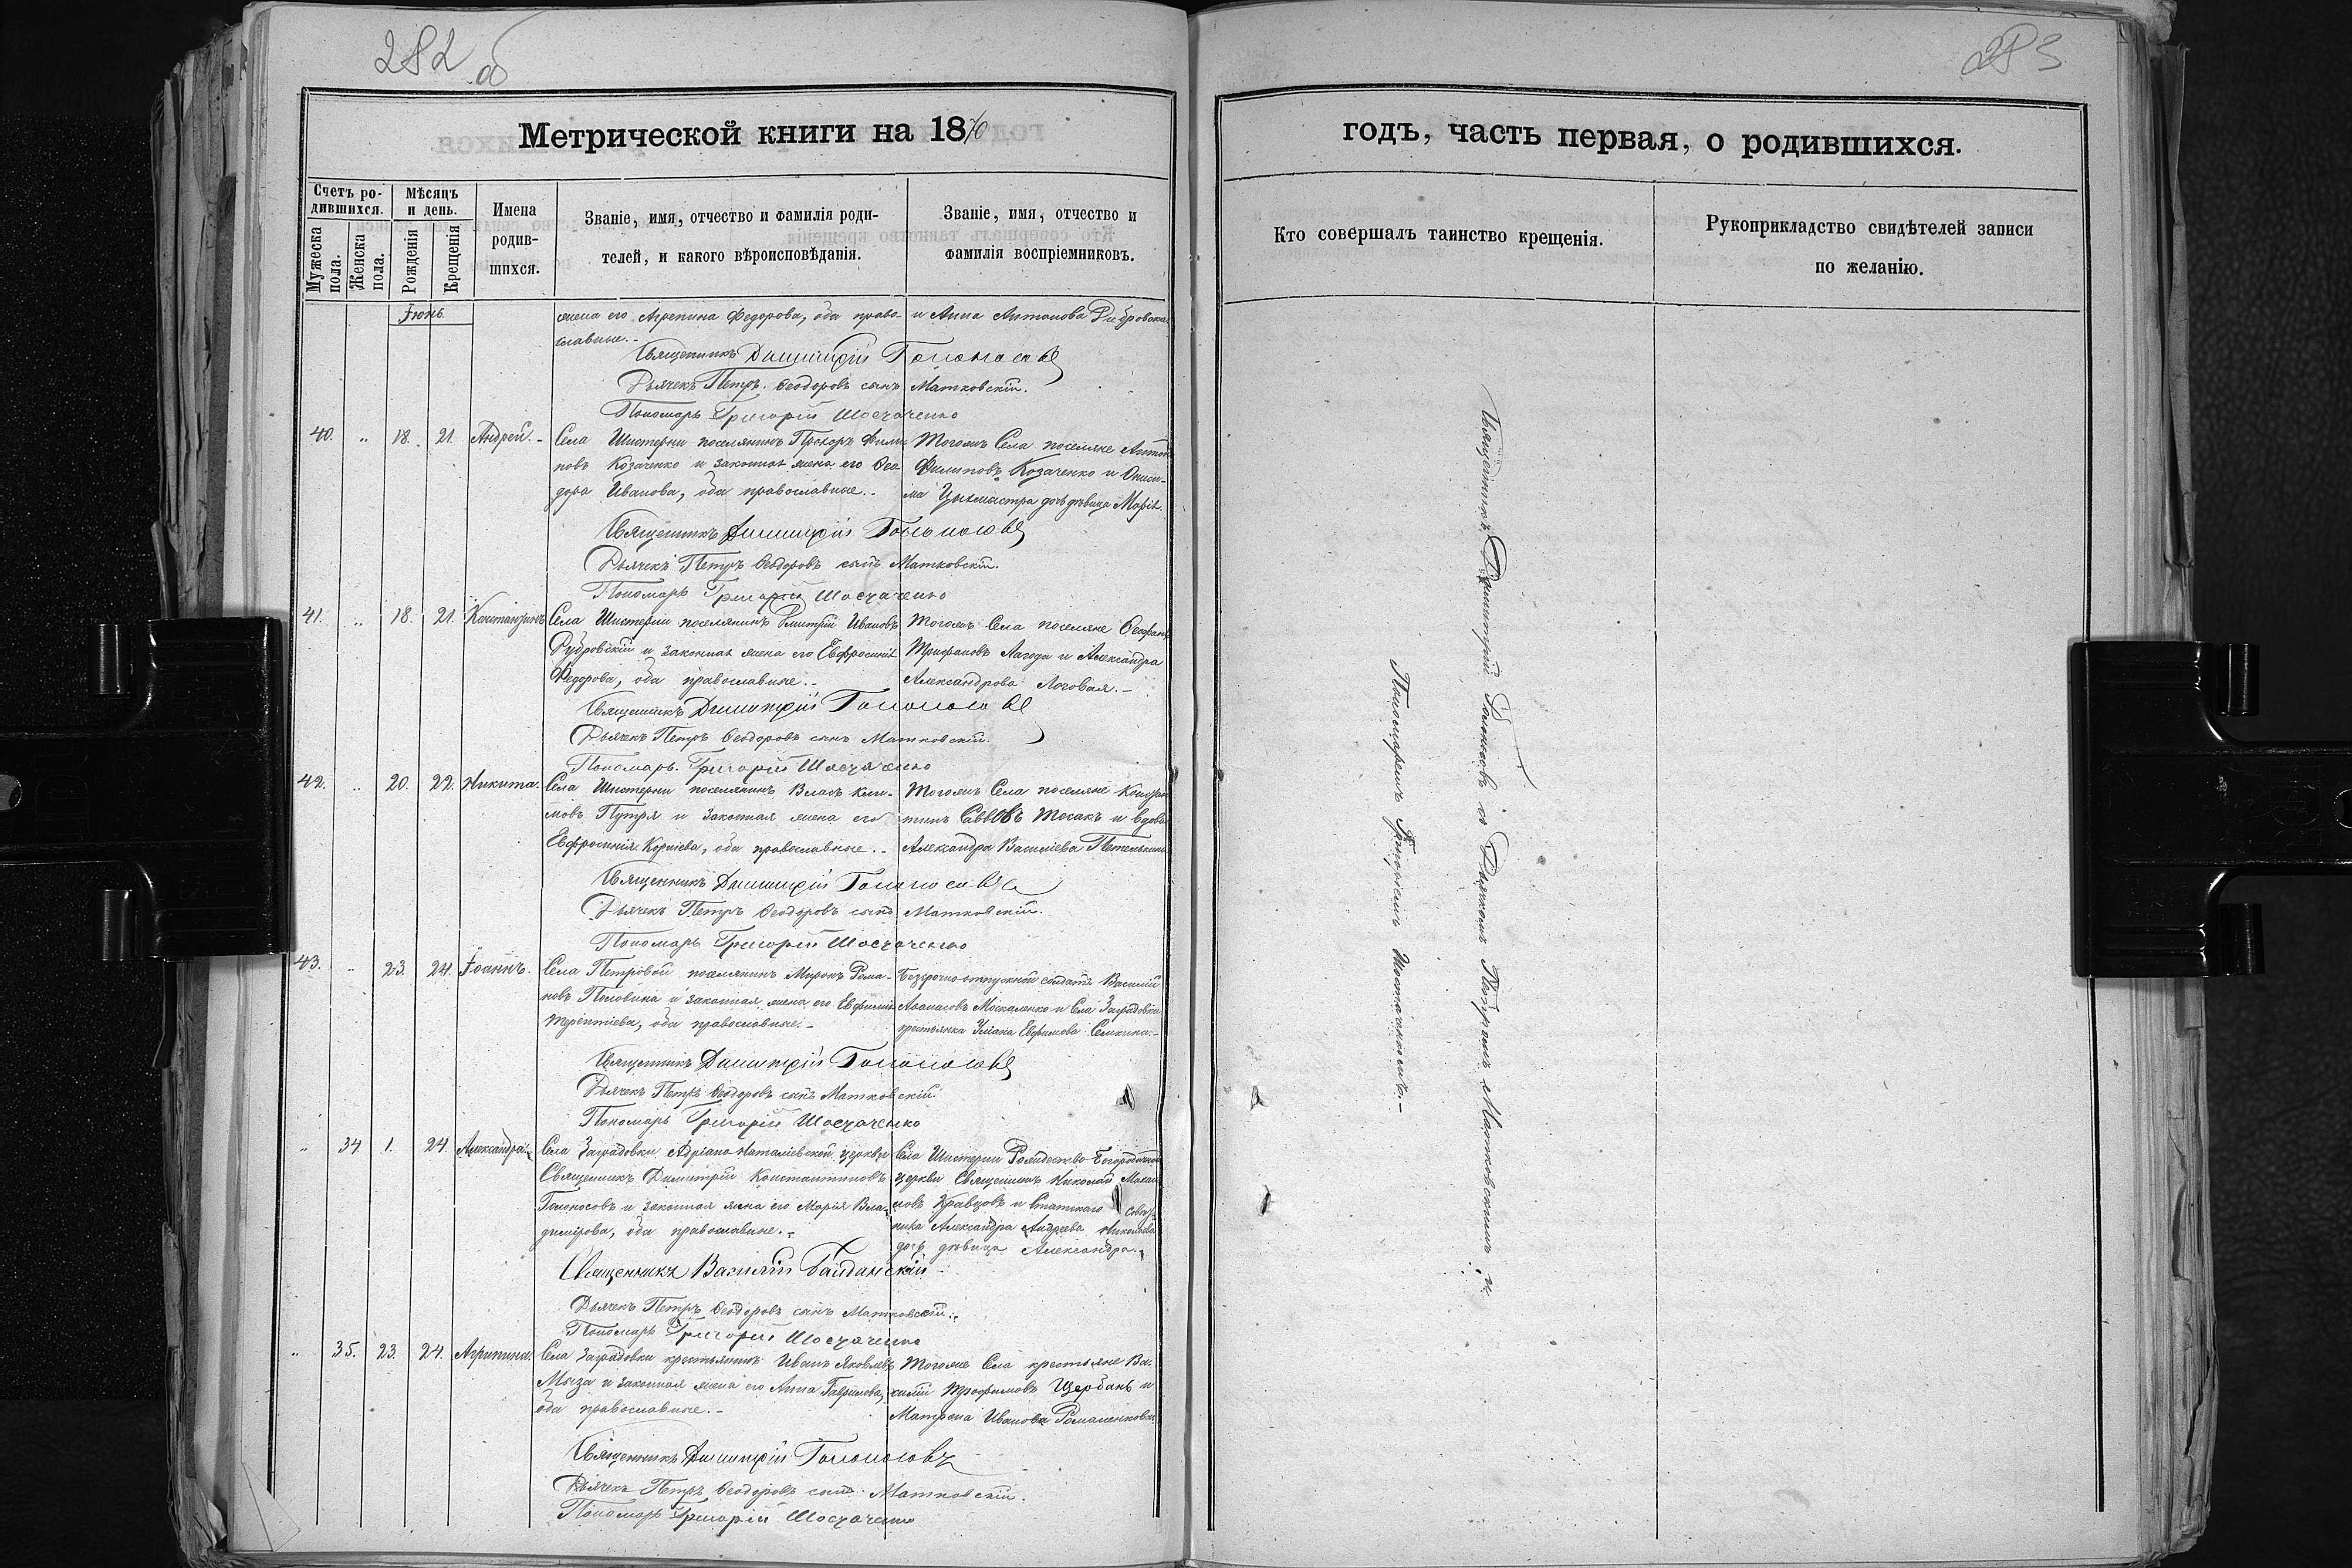 282 об
283
Метрической книги на 1870
годъ, часть первая, о родившихся.
Счетъ родившихся.
Мужеска пола.
Женска пола.
Мѣсяцъ и день.
Рожденія
Крещенія
Имена родившихся.
Званіе, имя, отчество и фамилія родителей, и какого вѣроисповѣданія.
Званіе, имя, отчество и фамилія воспріемниковъ.
Кто совершалъ таинство крещенія.
Рукоприкладство свидѣтелей записи по желанію.
Іюнь.
жена его Агрепина Федорова, оба право- и Анна Антонова
славные.-
Священникъ Димитрій Голоносовъ
Дьячекъ Петръ Ѳеодоровъ сынъ Матковскій.
Пономарь Григорій Шостаченко
40. " 18. 21. Андрей.- Села Шистерни поселянинъ Прохоръ Филип- Тогожъ Села поселяне Антонъ
повъ Козаченко и законная жена его Ѳео- Филиповъ Козаченко и Ониси-
дора Иванова, оба православные.- ма дочь дѣвица Марія.
Священникъ Димитрій Голоносовъ
Дьячекъ Петръ Ѳеодоровъ сынъ Матковскій.
Пономарь Григорій Шостаченко
41. " 18. 21. Константинъ Села Шистерни поселянинъ Дмитрій Ивановъ Тогожъ Села поселяне Ѳеофанъ
и законная жена его Евфросинія Трифановъ Лагода и Александра
Федорова, оба православные.- Александрова Логовая.-
Священникъ Димитрій Голоносовъ
Дьячекъ Петръ Ѳеодоровъ сынъ Матковскій.
Пономарь Григорій Шостаченко
42. " 20. 22. Никита. Села Шистерни поселянинъ Власъ Кли- Тогожъ Села поселяне Констан-
мовъ Путря и законная жена его тинъ Саввовъ Тесакъ и вдова
Евфросинія Корнієва, оба православные.- Александра Василіева
Священникъ Димитрій Голоносовъ
Дьячекъ Петръ Ѳеодоровъ сынъ Матковскій.
Пономарь Григорій Шостаченко
43. " 23. 24. Іоаннъ. Села Петровой поселянинъ Миронъ Рома- Безсрочно-отпускной солдатъ Василій
новъ Половина и законная жена его Евфимія Аѳанасовъ Москаленко и Села Заградовки
Терентіева, оба православные.- крестьянка Уліана Евфимова
Священникъ Димитрій Голоносовъ
Дьячекъ Петръ Ѳеодоровъ сынъ Матковскій
Пономарь Григорій Шостаченко
" 34 1. 24. Александра. Села Заградовки Адріано-Наталіевской церкви Села Шистерни Рождество-Богородичной
Священникъ Димитрій Константиновъ церкви Священникъ Николай
Голоносовъ и законная жена его Марія Вла- Кравцовъ и Статскаго Совѣт-
димірова, оба православные.- ника Александра Андреева Николаева
дочь дѣвица Александра.-
Священникъ Василій Байдинскій
Дьячекъ Петръ Ѳеодоровъ сынъ Матковскій.
Пономарь Григорій Шостаченко
" 35. 23. 24. Агрипина. Села Заградовки крестьянинъ Иванъ Яковлевъ Тогоже Села крестьяне Ва-
Мыза и законная жена его Анна Гаврилова, силій Трофимовъ Щербань и
оба православные.- Матрона Иванова Романенкова.
Священникъ Димитрій Голоносовъ
Дьячекъ Петръ Ѳеодоровъ сынъ Матковскій.
Пономарь Григорій Шостаченко
Священникъ Димитрій Голоносовъ съ Дьячкомъ Петромъ Матковскимъ и
Пономаремъ Григоріемъ Шостаченкомъ.-